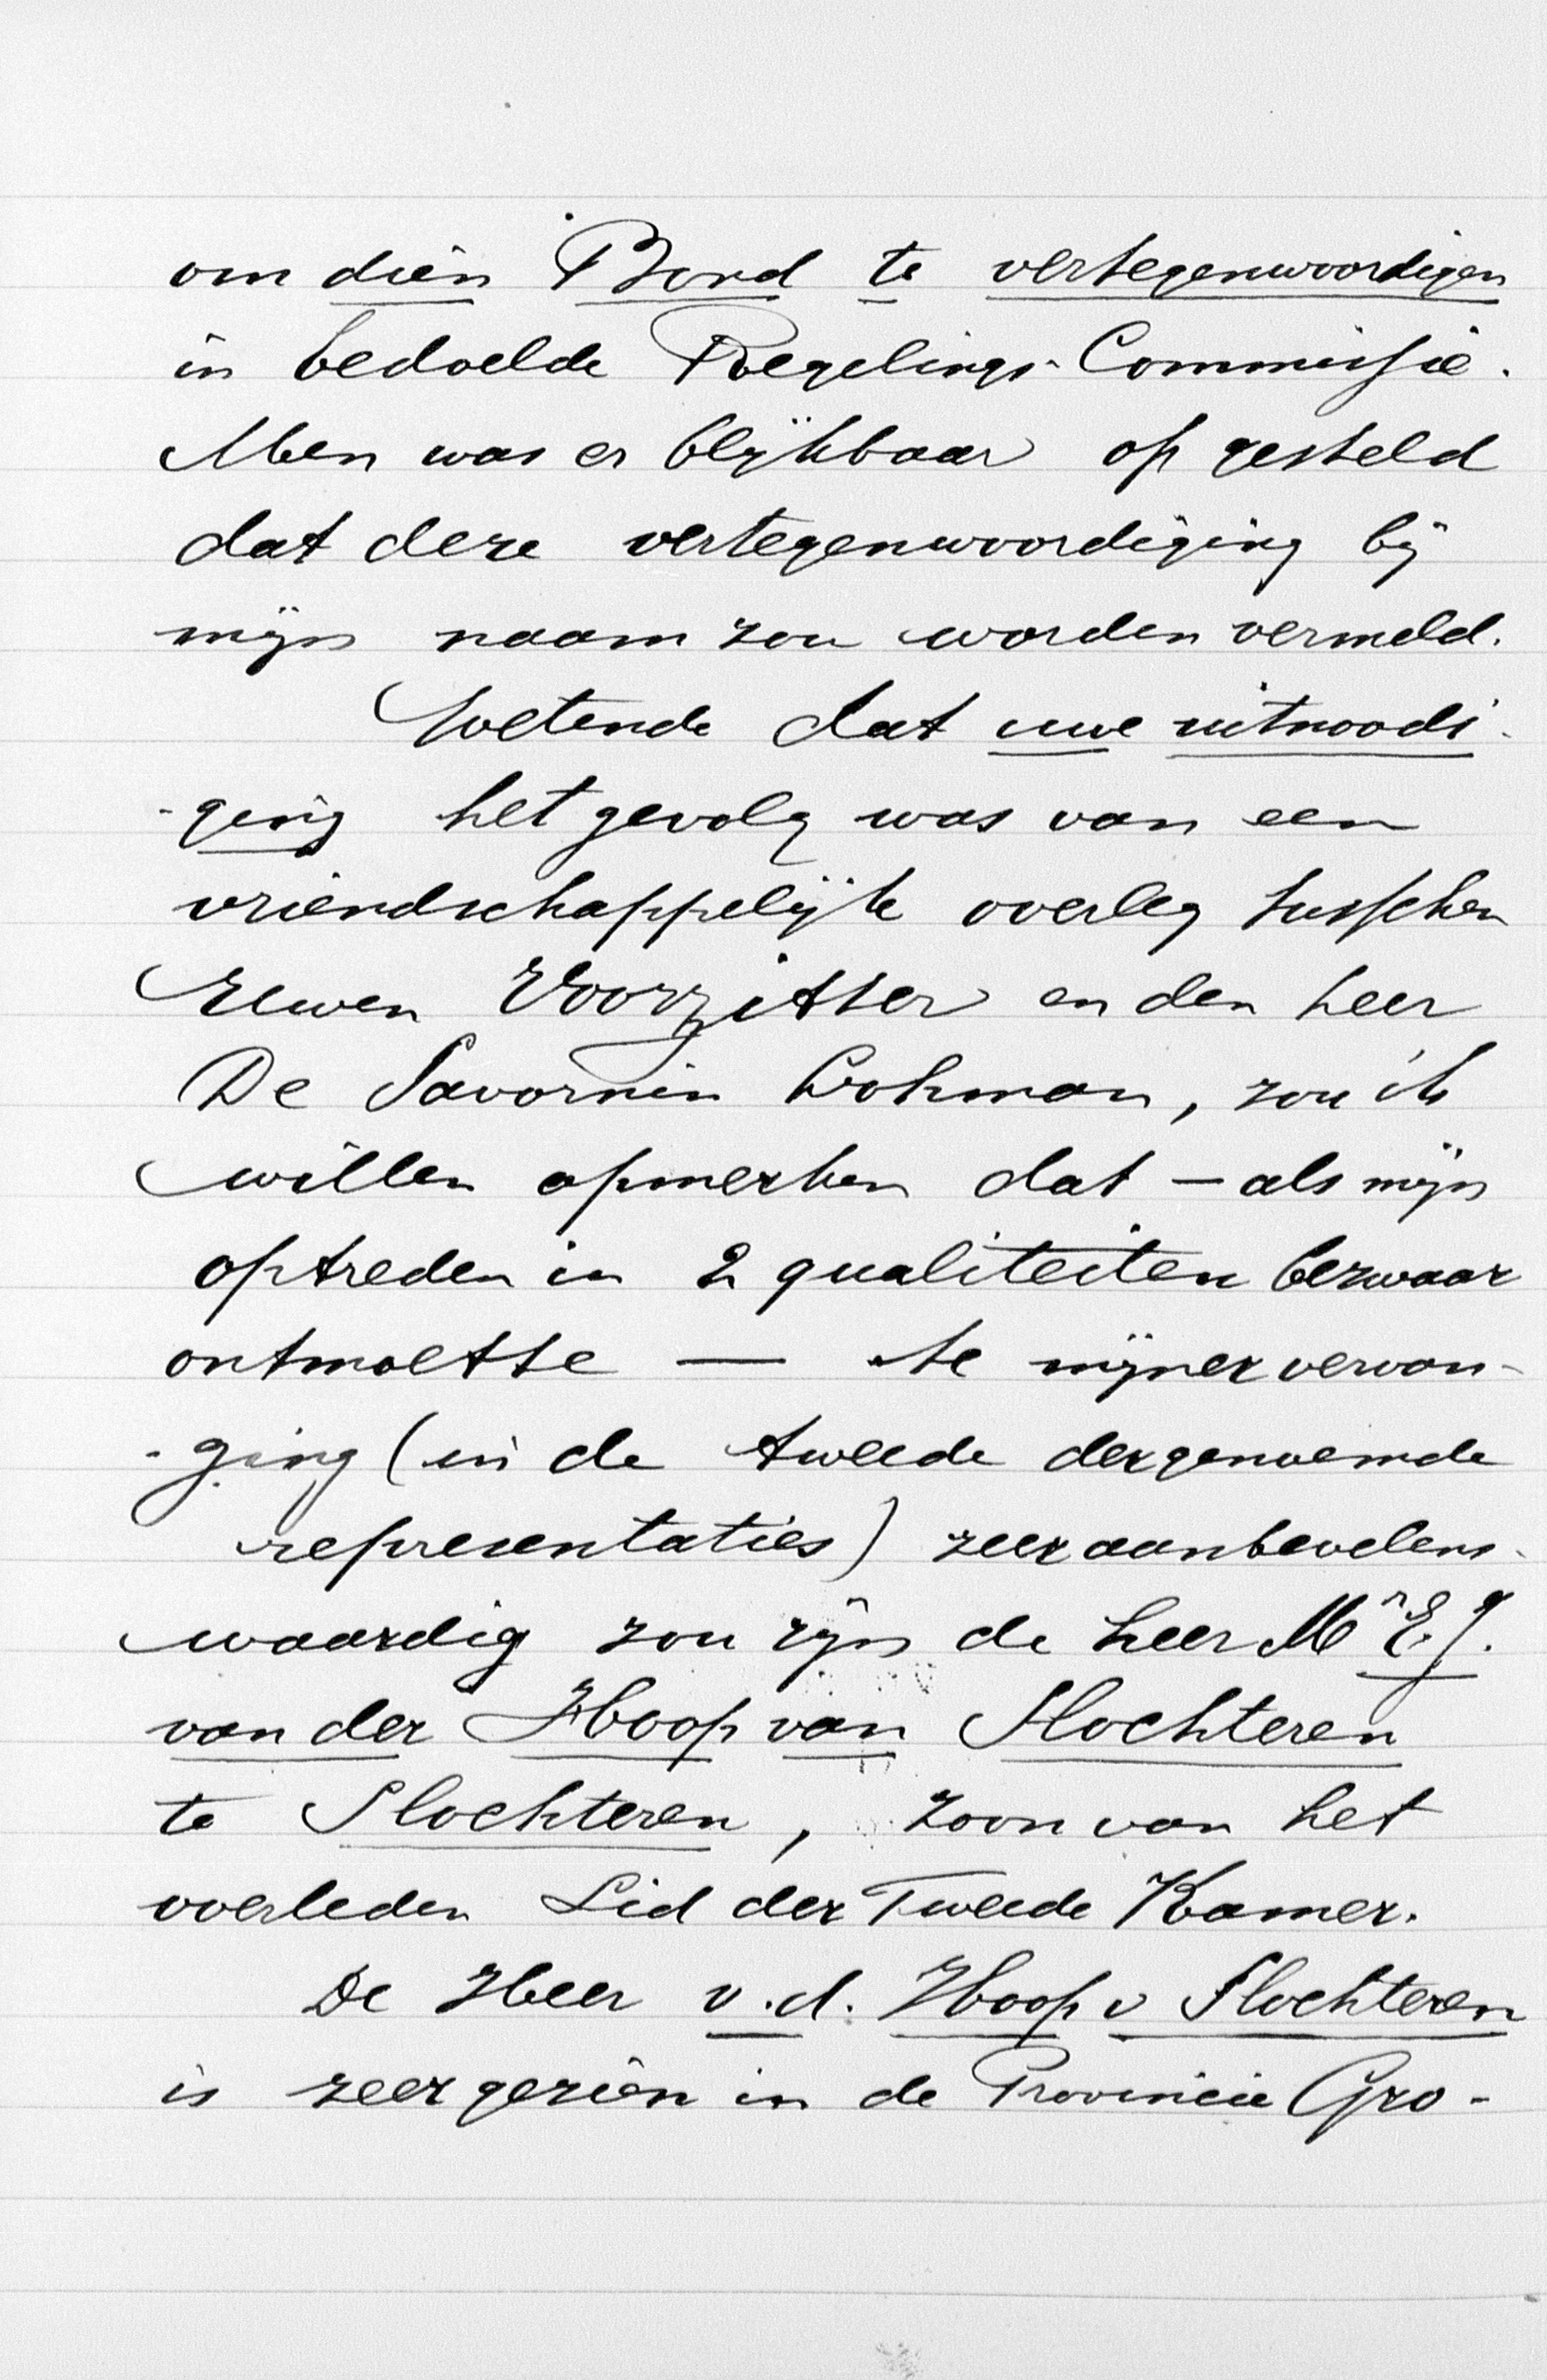 om dien Bond te vertegenwoordigen
in bedoelde Regelings-Commissie.
Men was er blijkbaar op gesteld
dat deze vertegenwoordiging bij
mijn naam zou worden vermeld.
Wetende dat uwe uitnoodi-
-ging het gevolg was van een
vriendschappelijk overleg tusschen
Uwen Voorzitter en den heer
De Savornin Lohman, zou ik
willen opmerken dat — als mijn
optreden in 2 qualiteiten bezwaar
ontmoette — te mijner vervan-
-ging (in de tweede der genoemde
representaties) zeer aanbevelens-
waardig zou zijn de heer Mr E.J.
van der Hoop van Slochteren
te Slochteren, zoon van het
overleden Lid der Tweede Kamer.
De Heer v.d. Hoop v Slochteren
is zeer gezien in de Provincie Gro-